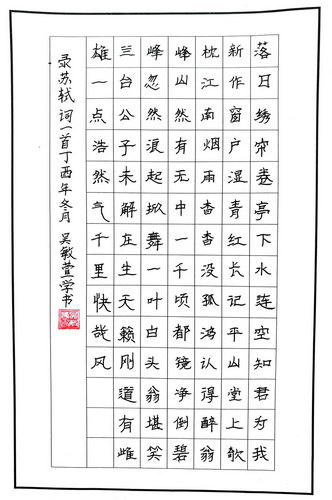 落日绣帘卷亭下水连空知君为我
新作窗户湿青红长记平山堂上欹
枕江南烟雨杳杳没孤鸿认得醉翁
峰山然有无中一千顷都镜净倒碧
峰忽然浪起掀舞一叶白头翁堪笑
兰台公子未解庄生天籁刚道有雌
雄一点浩然气千里快哉风
录苏轼词一首丁酉年冬月 吴敏萱学书